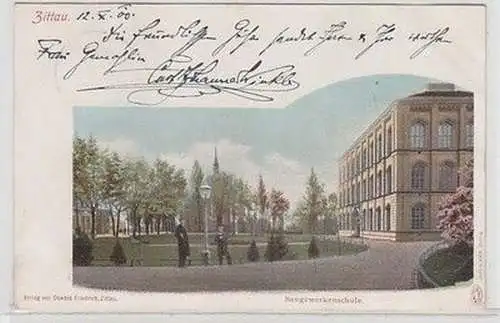 Zittau. 12. X. 00.
Die freundlichsten Grüße sendet Ihnen u. Ihrer werthen
Frau Gemahlin
Verlag von Oswald Friedrich, Zittau.
Baugewerkenschule.